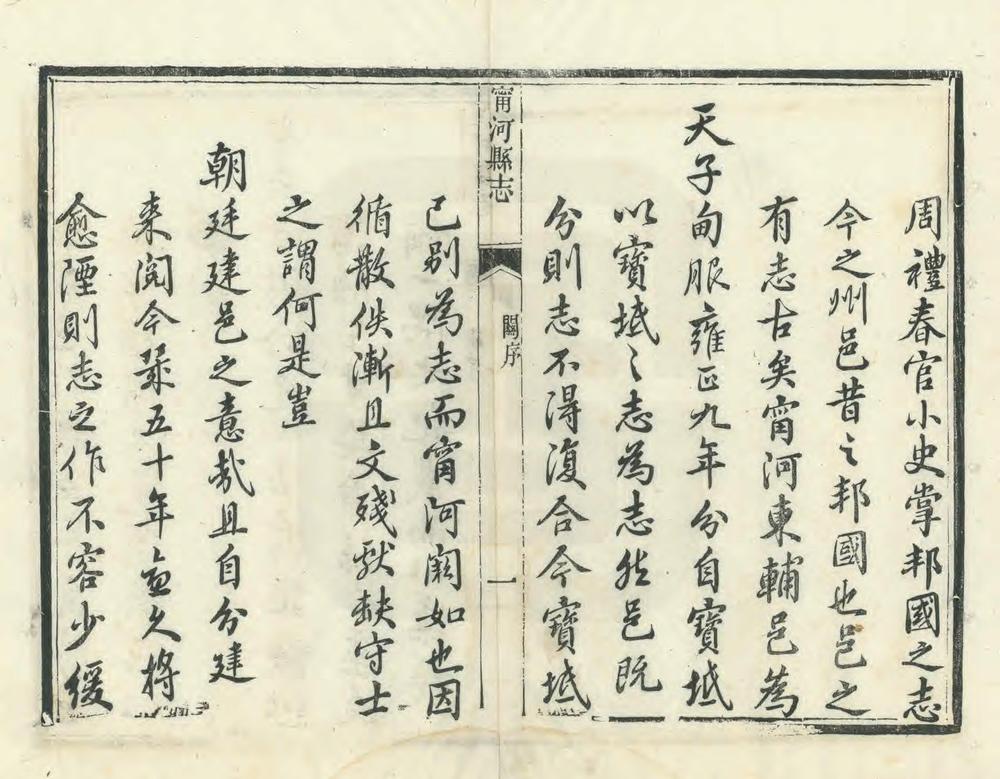 周禮春官小史掌邦國之志
今之州邑昔之邦國也邑之
有志古矣甯河東輔邑為
天子甸服雍正九年分自寶坻
以寶坻之志為志然邑既
分則志不得復合今寶坻
甯河縣志
關序
一
已别為志而甯河闕如也因
循散佚漸且文殘獻缺守土
之謂何是豈
朝廷建邑之意哉且自分建
来閲今幾五十年愈久將
愈湮則志之作不容少緩